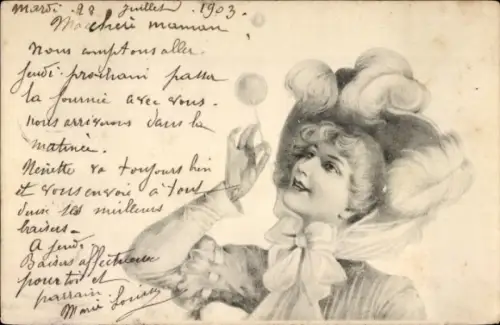 Mardi 28 juillet 1903
Ma chère maman
Nous comptons aller
jeudi prochain passer
la journée avec vous.
nous arriverons dans la
matinée.
Ninette va toujours bien
et vous envoie à tous
deux ses meilleurs
baisers.
A jeudi.
Baisers affectueux
pour toi et
parrain.
Marie Louise